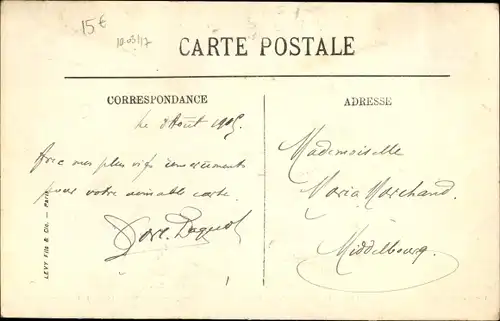 15€
10-03/17
CARTE POSTALE
CORRESPONDANCE
ADRESSE
le 8 Août 1905.
Avec mes plus vifs
pour votre aimable carte.
Mademoiselle
Maria Marchand.
Middelbourg.
LEVY Fils & Cie. — Paris